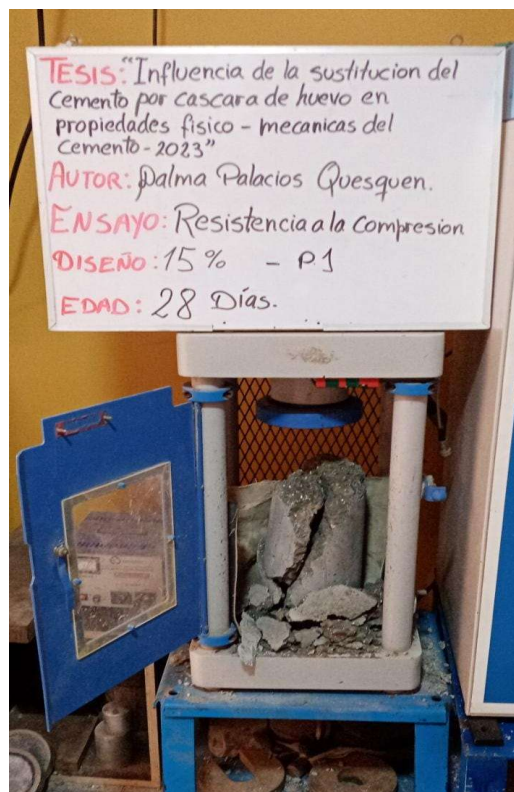 TESIS: "Influencia de la sustitucion del
Cemento por cascara de huevo en
propiedades fisico - mecanicas del
Cemento - 2023"
AUTOR: Dalma Palacios Quesquen.
ENSAYO: Resistencia a la Compresion
DISEÑO: 15% - P.1
EDAD: 28 Días.